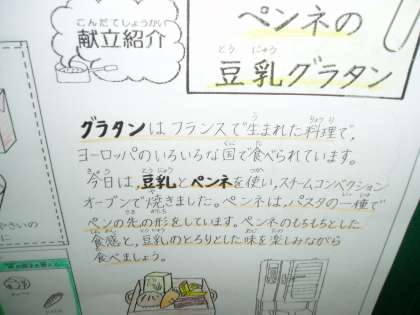 こんだてしょうかい
献立紹介
ペンネの
豆乳グラタン
グラタンはフランスで生まれた料理で、
ヨーロッパのいろいろな国で食べられています。
今日は、豆乳とペンネを使い、スチームコンベクション
オーブンで焼きました。ペンネは、パスタの一種で
ペンの先の形をしています。ペンネのもちもちとした
食感と、豆乳のとろりとした味を楽しみながら
食べましょう。